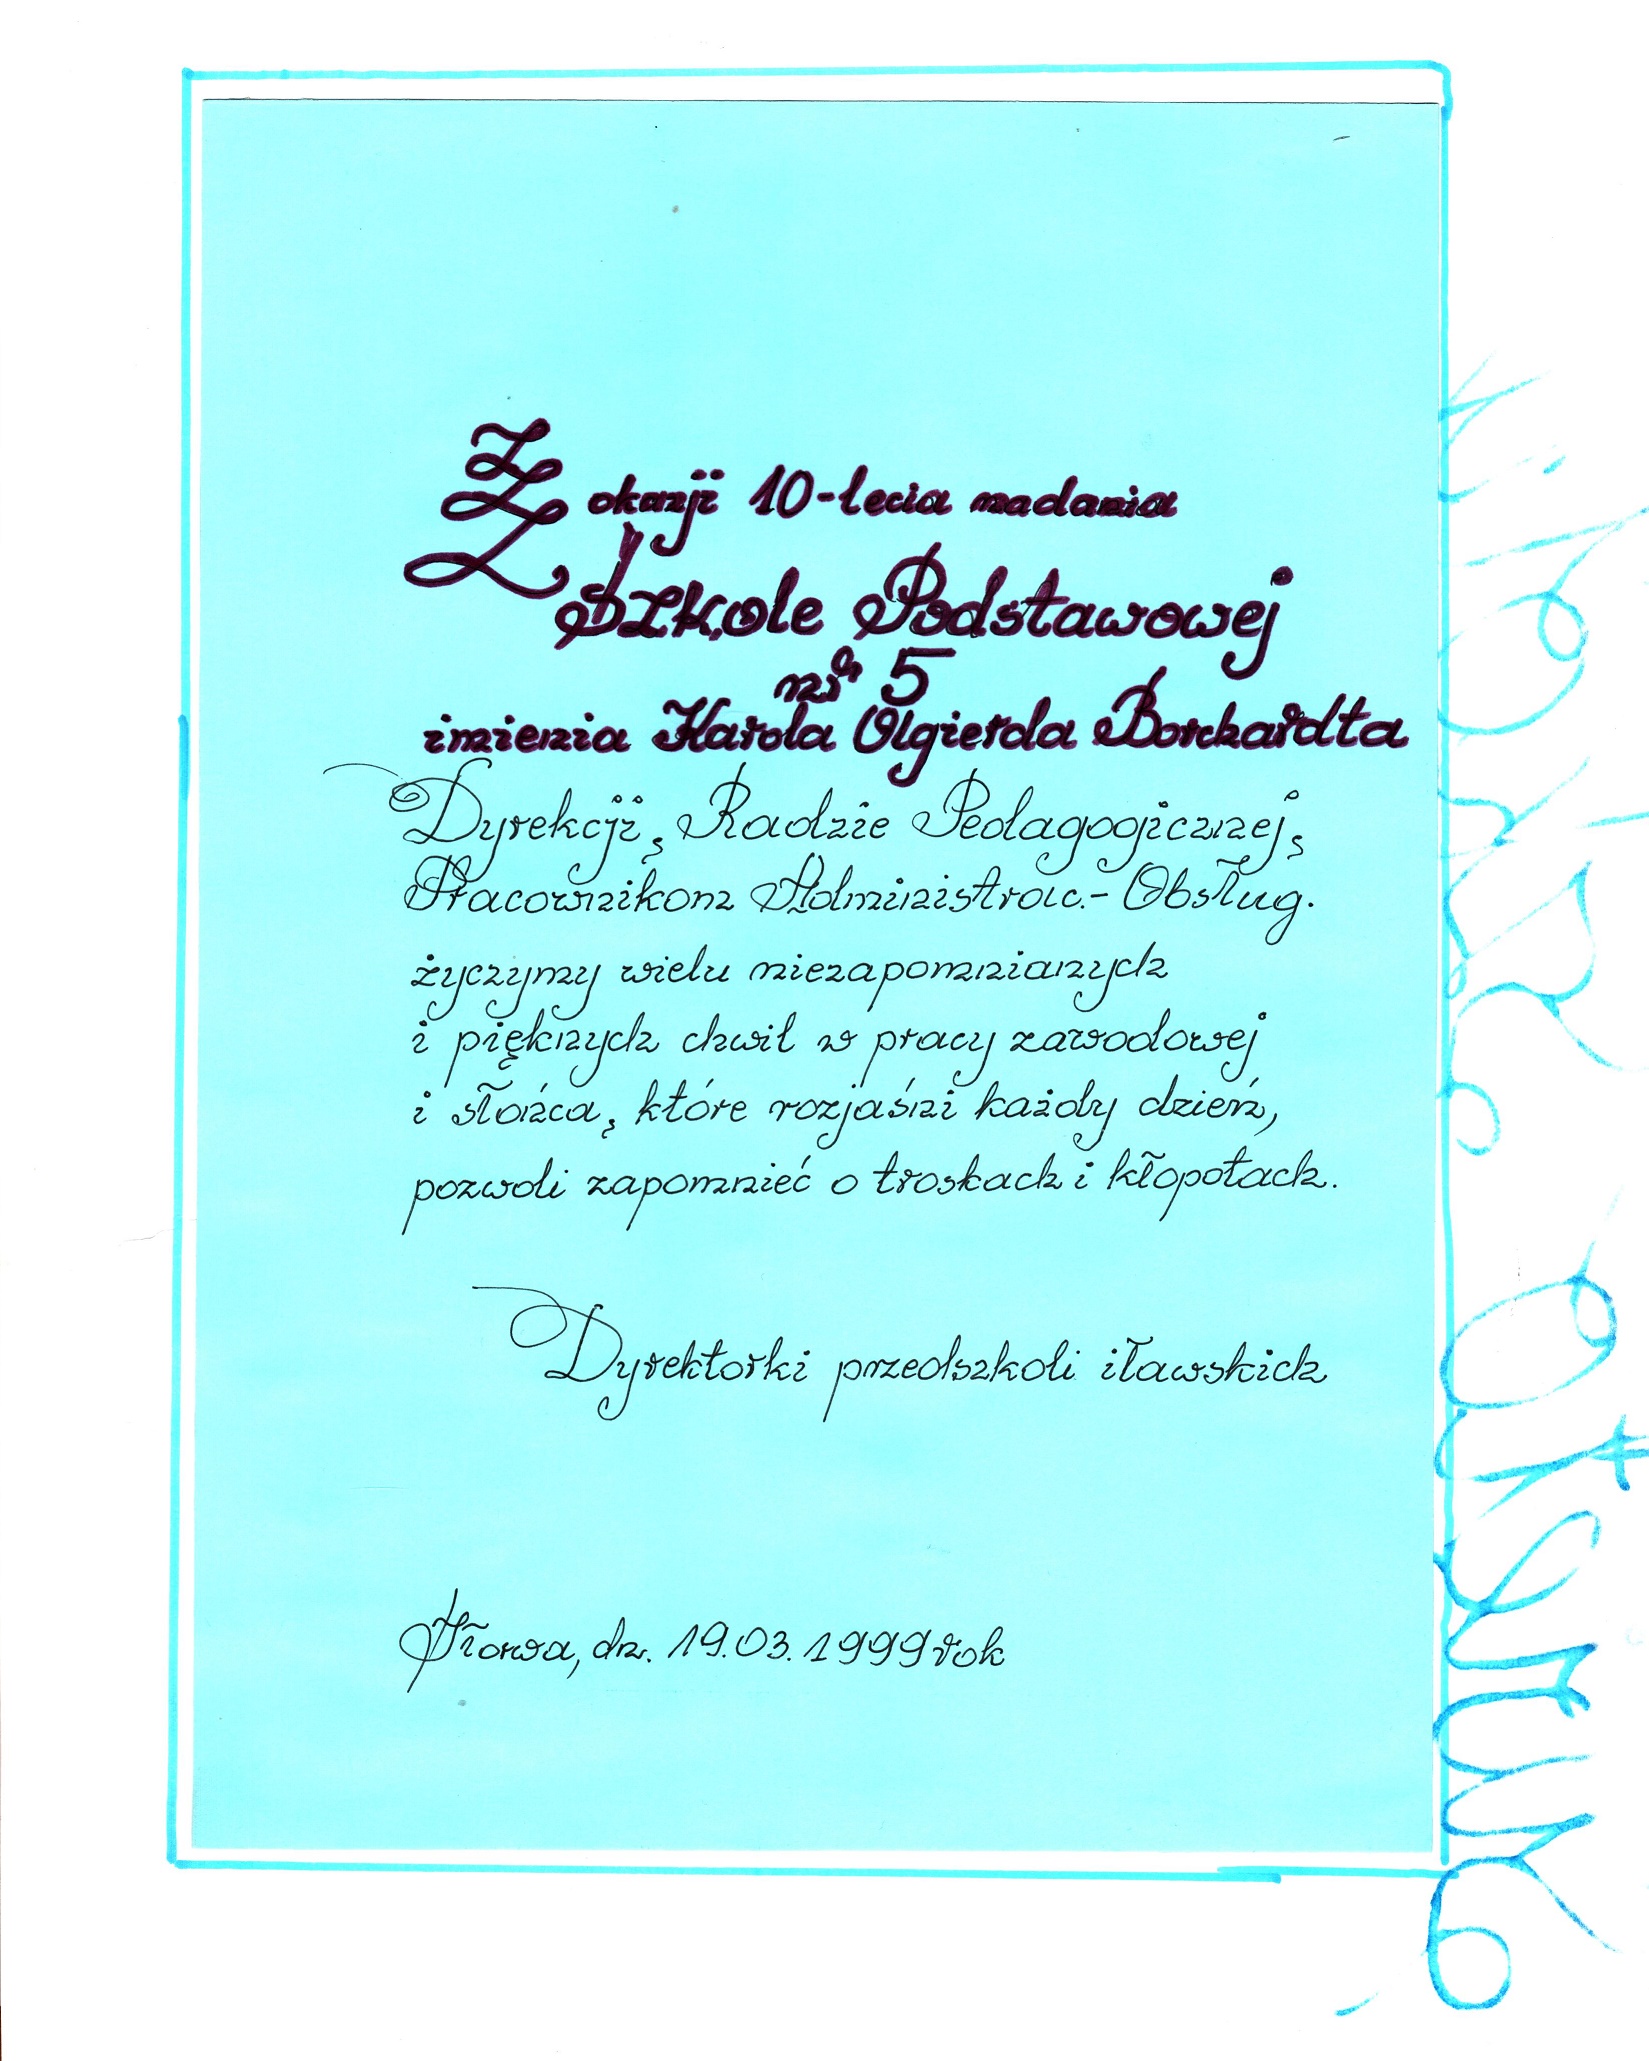 Z okazji 10-lecia nadania
Szkole Podstawowej
nr 5
imienia Karola Olgierda Borchardta
Dyrekcji, Radzie Pedagogicznej,
Pracownikom Administrac.- Obsług.
życzymy wielu niezapomnianych
i pięknych chwil w pracy zawodowej
i słońca, które rozjaśni każdy dzień,
pozwoli zapomnieć o troskach i kłopotach.
Dyrektorki przedszkoli iławskich
Iława, dn. 19.03.1999 rok